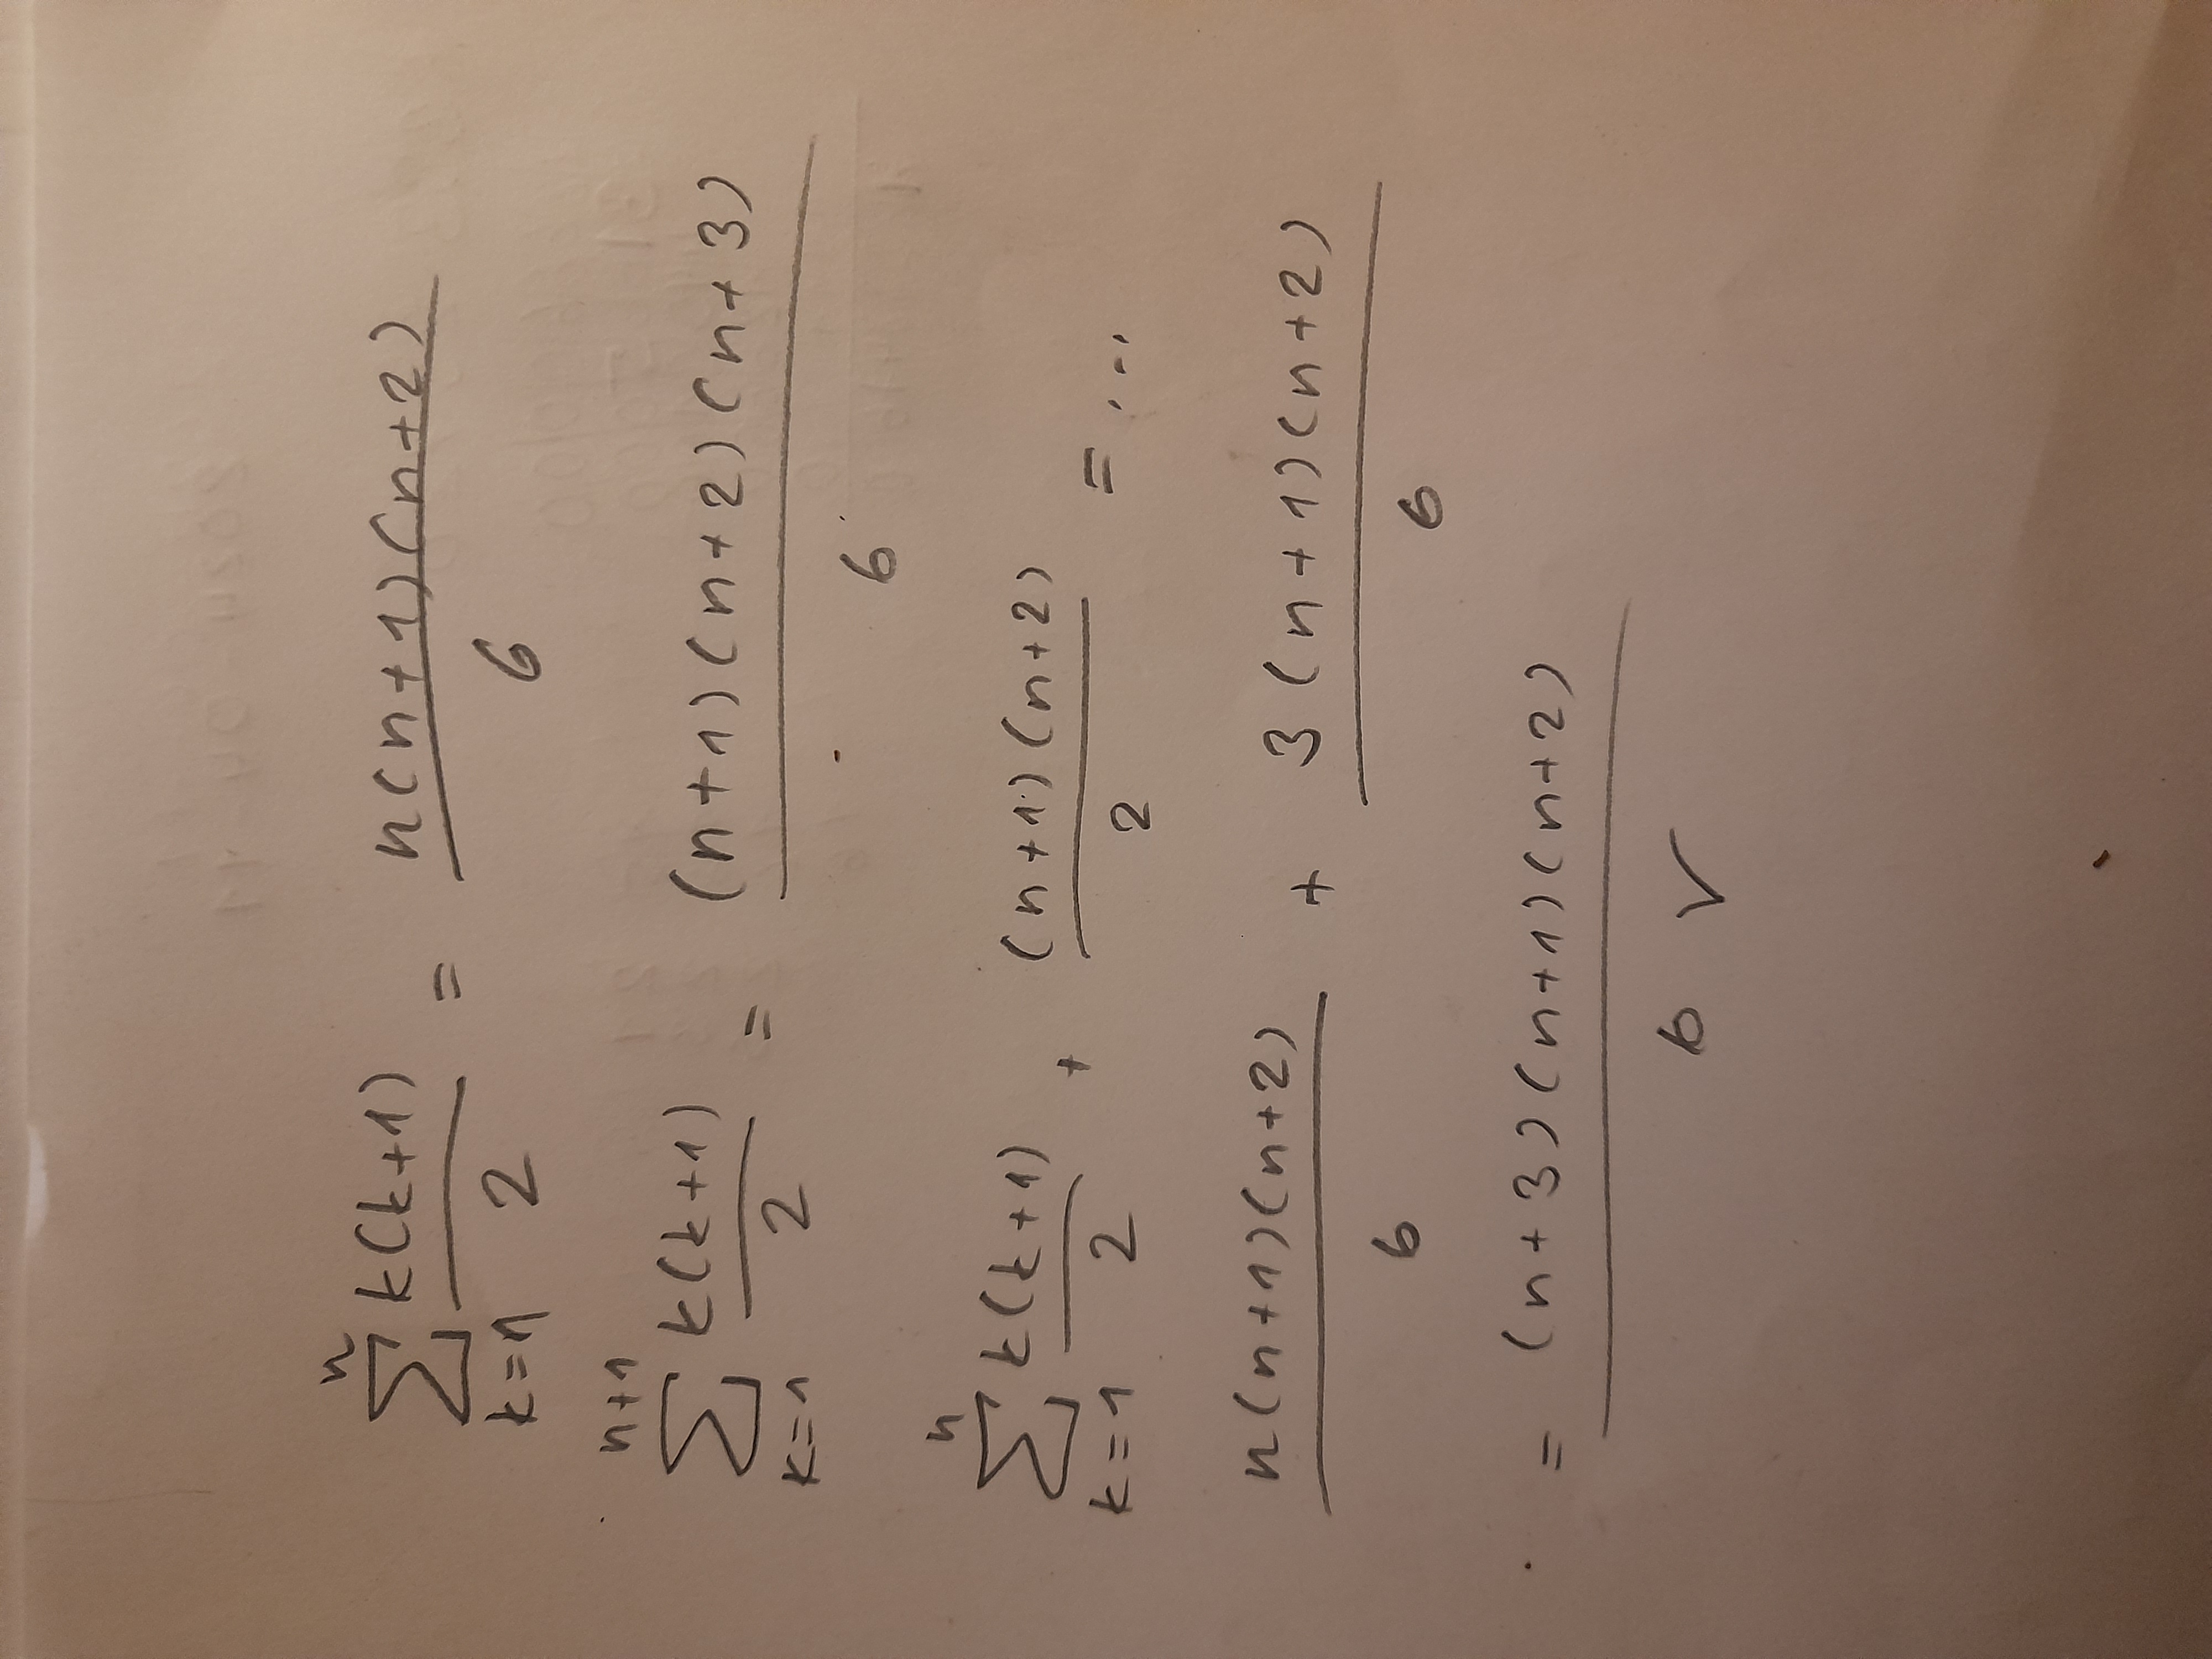 ∑_{k=1}^{n} k(k+1)/2 = n(n+1)(n+2)/6
∑_{k=1}^{n+1} k(k+1)/2 = (n+1)(n+2)(n+3)/6
∑_{k=1}^{n} k(k+1)/2 + (n+1)(n+2)/2 = ...
n(n+1)(n+2)/6 + 3(n+1)(n+2)/6
= (n+3)(n+1)(n+2)/6 ✓